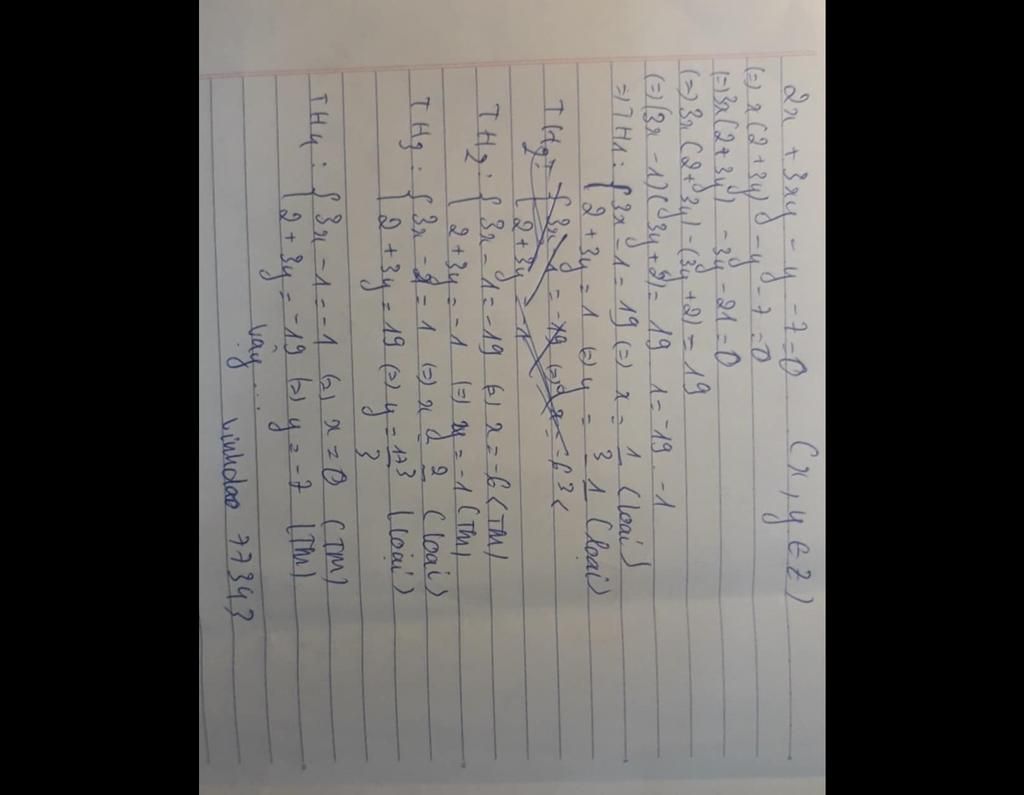 2x + 3xy - y - 7 = 0 (x, y ∈ Z)
(=) x(2+3y) - y - 7 = 0
(=) 3x(2+3y) - 3y - 21 = 0
(=) 3x(2+3y) - (3y+2) = 19
(=) (3x-1)(3y+2) = 19 1 = -19 . -1
=) TH1: { 3x - 1 = 19 (=) x = (loại)
2 + 3y = 1 (=) y = (loại)
TH2: { 3x - 1 = -19 (=) x = -6 (TM)
2 + 3y = -1 (=) y = -1 (TM)
TH3: { 3x - 1 = 1 (=) x = 2/3 (loại)
2 + 3y = 19 (=) y = 17/3 (loại)
TH4: { 3x - 1 = -1 (=) x = 0 (TM)
2 + 3y = -19 (=) y = -7 (TM)
Vậy ...
Linhdao 77343